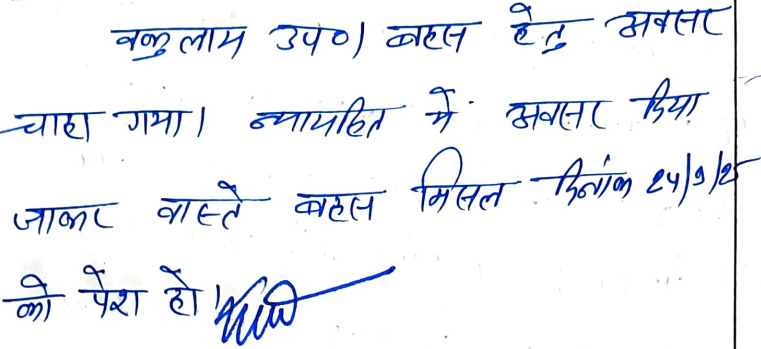 वकुलाम उप०। बहस हेतु अवसर
चाहा गया। न्यायहित में अवसर दिया
जाकर वास्ते बहस मिसल दिनांक 24/9/25
को पेश हो।